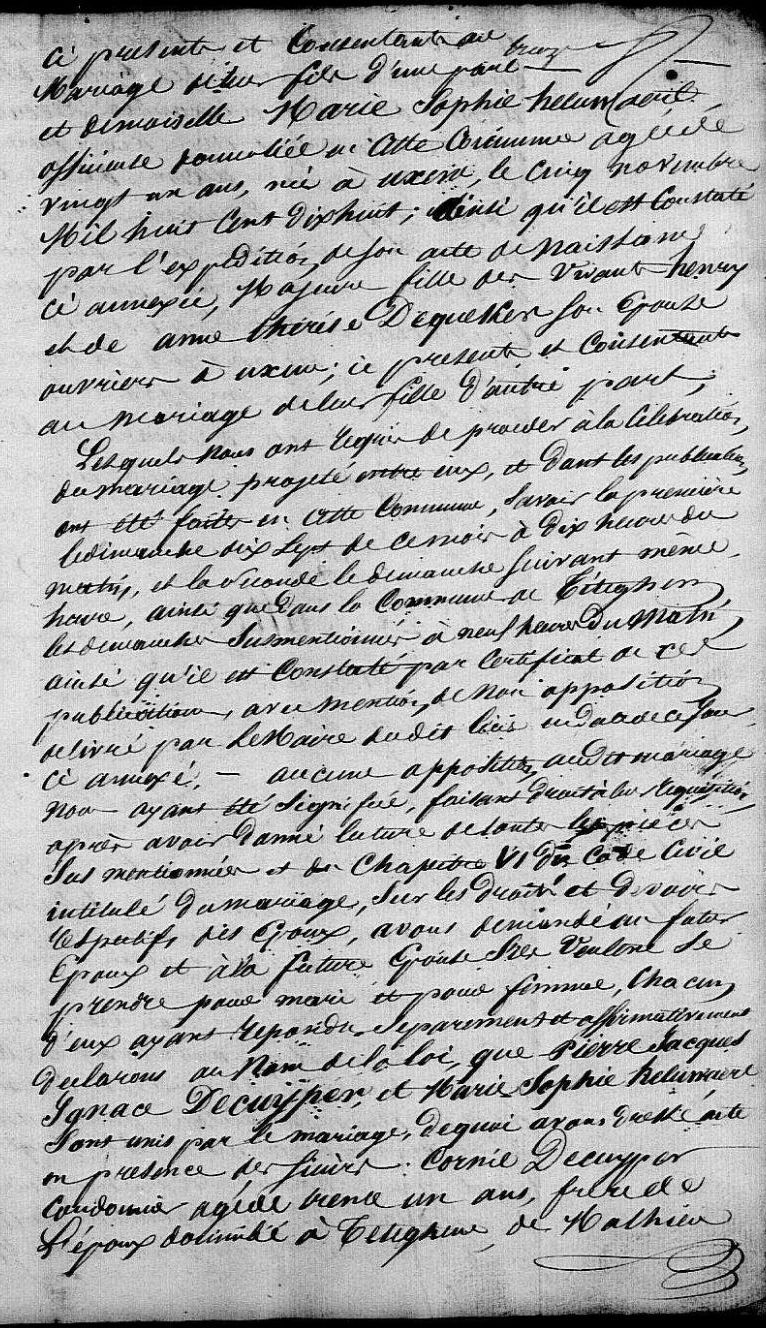 ci presents et Consentants au
Mariage de leur fils d'une part
et demoiselle Marie Sophie
domiciliée en Cette Commune agée de
vingt un ans, née à uxem, le Cinq novembre
Mil huit Cent dixhuit; ainsi qu'il est Constaté
par l'expedition de son acte de Naissance
ci annexée, Majeure fille des Vivants henry
et de anne thérèse Dequeker son Epouse
ouvriers à uxem; ici presents et Consentants
au mariage de leur fille d'autre part,
Lesquels Nous ont requis de proceder à la Célébration
du mariage projeté entre eux, et dont les publications
ont été faites en Cette Commune, Savoir la première
le dimanche dix sept de ce mois à dix heures du
matin, et la seconde le dimanche suivant même
heure, ainsi que dans la Commune de Téteghem
les dimanches Susmentionnés à neuf heures du Matin
ainsi qu'il est Constaté par Certificat de ces
publications, avec mention de Non opposition
delivré par le Maire dudit lieu en date de ce jour
ci annexé. — aucune opposition audit mariage
Nous ayant été Signifiée, faisant droit à leur requisition
après avoir donné lecture de toutes les pièces
Sus mentionnées et du Chapitre VI du Code Civil
intitulé du mariage, Sur les droits et devoirs
respectifs des Epoux, avons demandé au futur
Epoux et à la future Epouse S'ils Veulent Se
prendre pour mari et pour femme, Chacun
d'eux ayant repondu Separement et affirmativement
declarons au Nom de la loi, que Pierre Jacques
Ignace Decuyper, et Marie Sophie
Sont unis par le mariage, dequoi avons dressé acte
en presence des Sieurs. Cornil Decuyper
Cordonnier agé de trente un ans, frere de
L'époux domicilié à Teteghem, de Mathieu